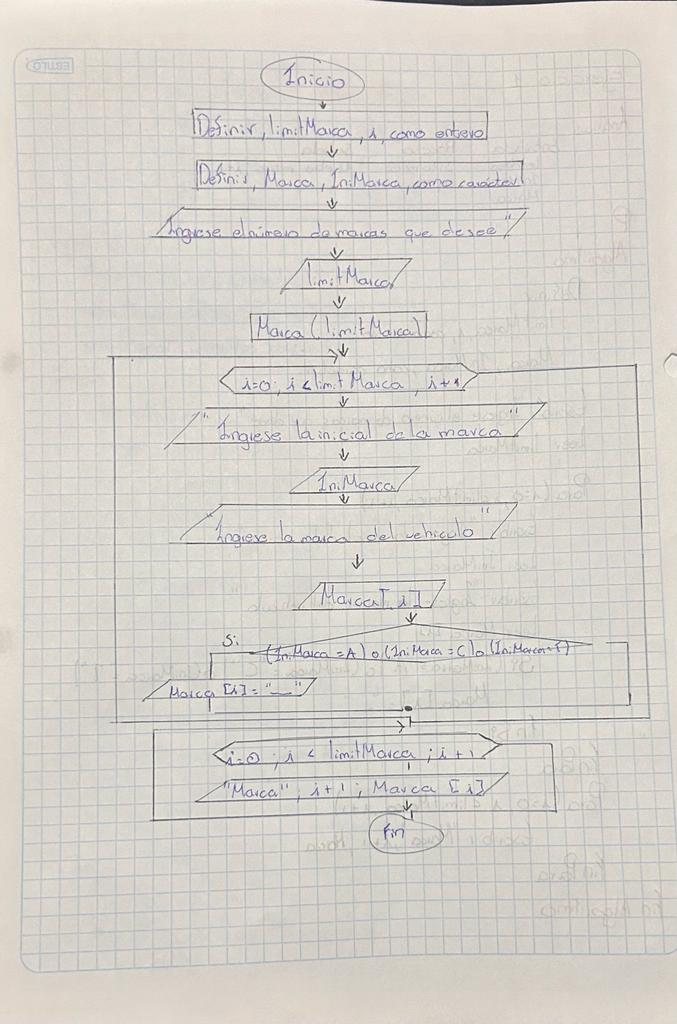 Inicio
Definir, limitMarca, i, como entero
Definir, Marca, IniMarca, como carácter
"Ingrese el número de marcas que desee"
limitMarca
Marca (limitMarca)
i=0; i < limit Marca, i+1
"Ingrese la inicial de la marca"
IniMarca
"Ingrese la marca del vehiculo"
Marca[i]
Si
(IniMarca = A) o (IniMarca = C) o (IniMarca =
Marca [i] = "__"
i=0; i < limitMarca; i+1
"Marca", i+1; Marca [i]
Fin